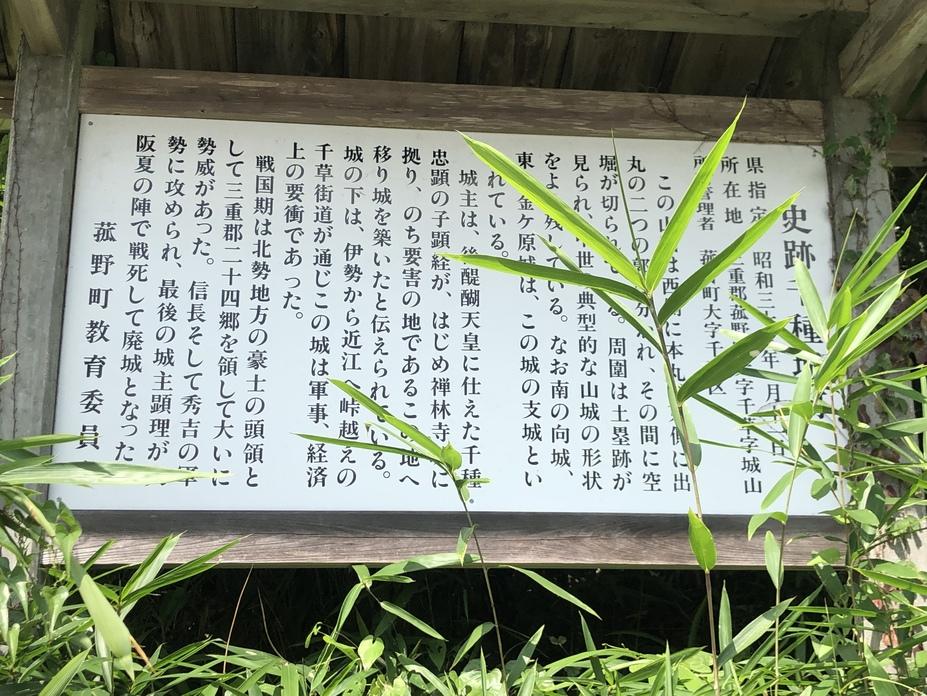 史跡 種
県指定 昭和三 年 月
所在地 重郡菰野 字千 字城山
管理者 町大字千 区
この山 は西 に本丸 に出
丸の二つの 分 れ、その間に空
堀が切られ る。周囲は土塁跡が
見られ、中世 典型的な山城の形状
をよ 残している。なお南の向城、
東 金ケ原城は、この城の支城とい
れている。
城主は、後醍醐天皇に仕えた千種
忠顕の子顕経が、はじめ禅林寺 に
拠り、のち要害の地であるこの地へ
移り城を築いたと伝えられている。
城の下は、伊勢から近江へ峠越えの
千草街道が通じこの城は軍事、経済
上の要衝であった。
戦国期は北勢地方の豪士の頭領と
して三重郡二十四郷を領して大いに
勢威があった。信長そして秀吉の軍
勢に攻められ、最後の城主顕理が
阪夏の陣で戦死して廃城となった
菰野町教育委員